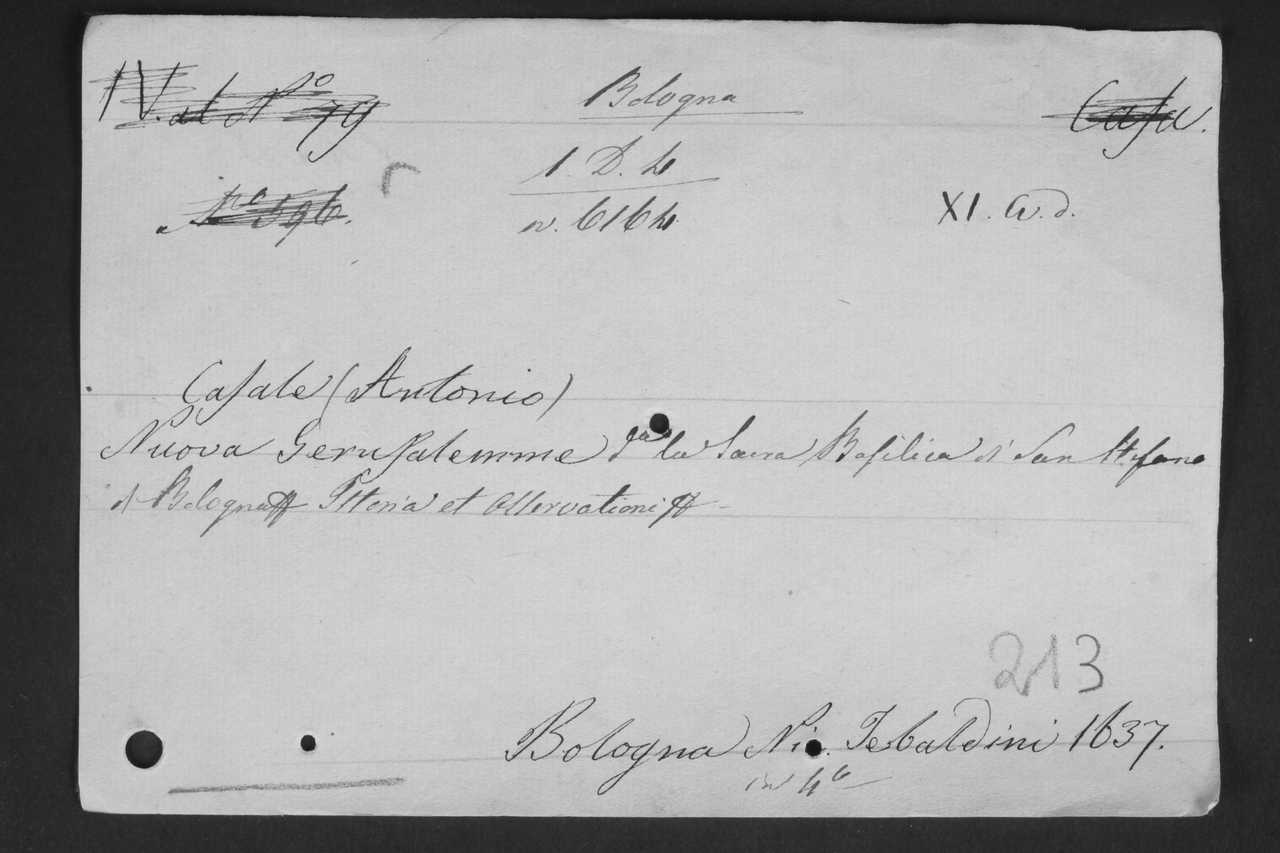 IV. al N.o 79
Bologna
Casa.
1. D. 4
N.o 596.
n. 6164
XI. a. d.
Casale (Antonio)
Nuova Gerusalemme d.a la Sacra Basilica di San Stefano
di Bologna Istoria et osservationi
213
Bologna Nic. Tebaldini 1637.
in 4o